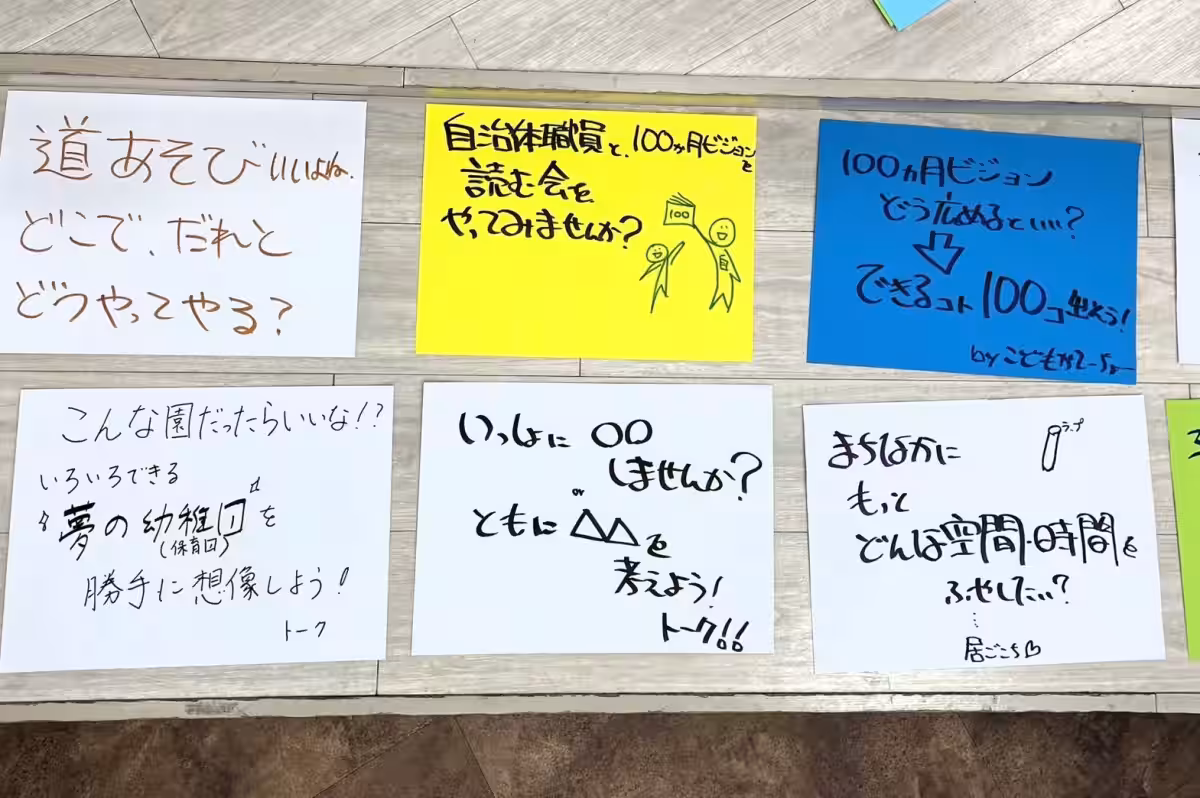 道あそびいいよね。
どこで、だれと
どうやってやる？
自治体職員と、100ヵ月ビジョンを
読む会を
やってみませんか？
100
自
100ヵ月ビジョン
どう広めるといい？
できるコト100コ出そう！
by こどもかてーちょー
こんな園だったらいいな！？
いろいろできる
夢の幼稚園を
(保育園)
勝手に想像しよう！
トーク
いっしょに 〇〇
しませんか？
or
ともに △△を
考えよう！
トーク！！
まちなかに
ラップ
もっと
どんな空間・時間を
ふやしたい？
居ごこち